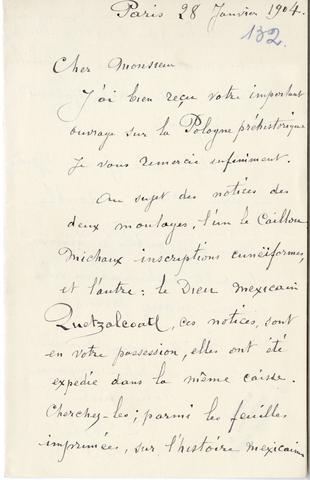 Paris 28 Janvier 1904.
132.
Cher Monsieur
J'ai bien reçu votre important
ouvrage sur la Pologne préhistorique
Je vous remercie infiniment.
Au sujet des notices des
deux moulages, l'un le Caillou
Michaux inscriptions cunéiformes,
et l'autre : le Dieu Mexicain
Quetzalcoatl, ces notices, sont
en votre possession, elles ont été
expédié dans la même caisse.
Cherchez-les ; parmi les feuilles
imprimées, sur l'histoire Mexicaine